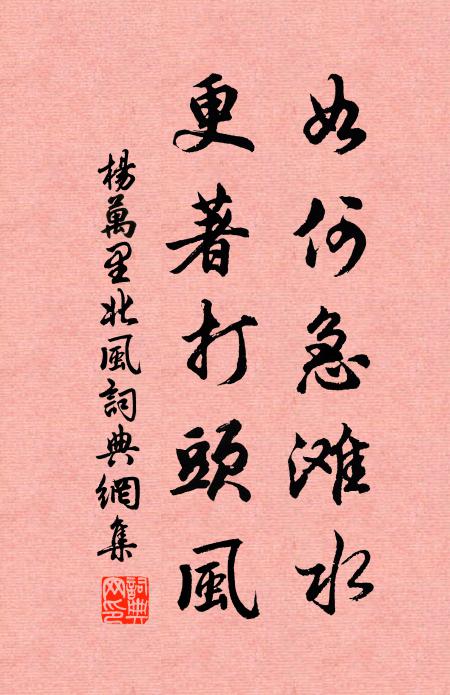 如何急滩水
更著打頭風
楊萬里北風詞典網集
詞典網印